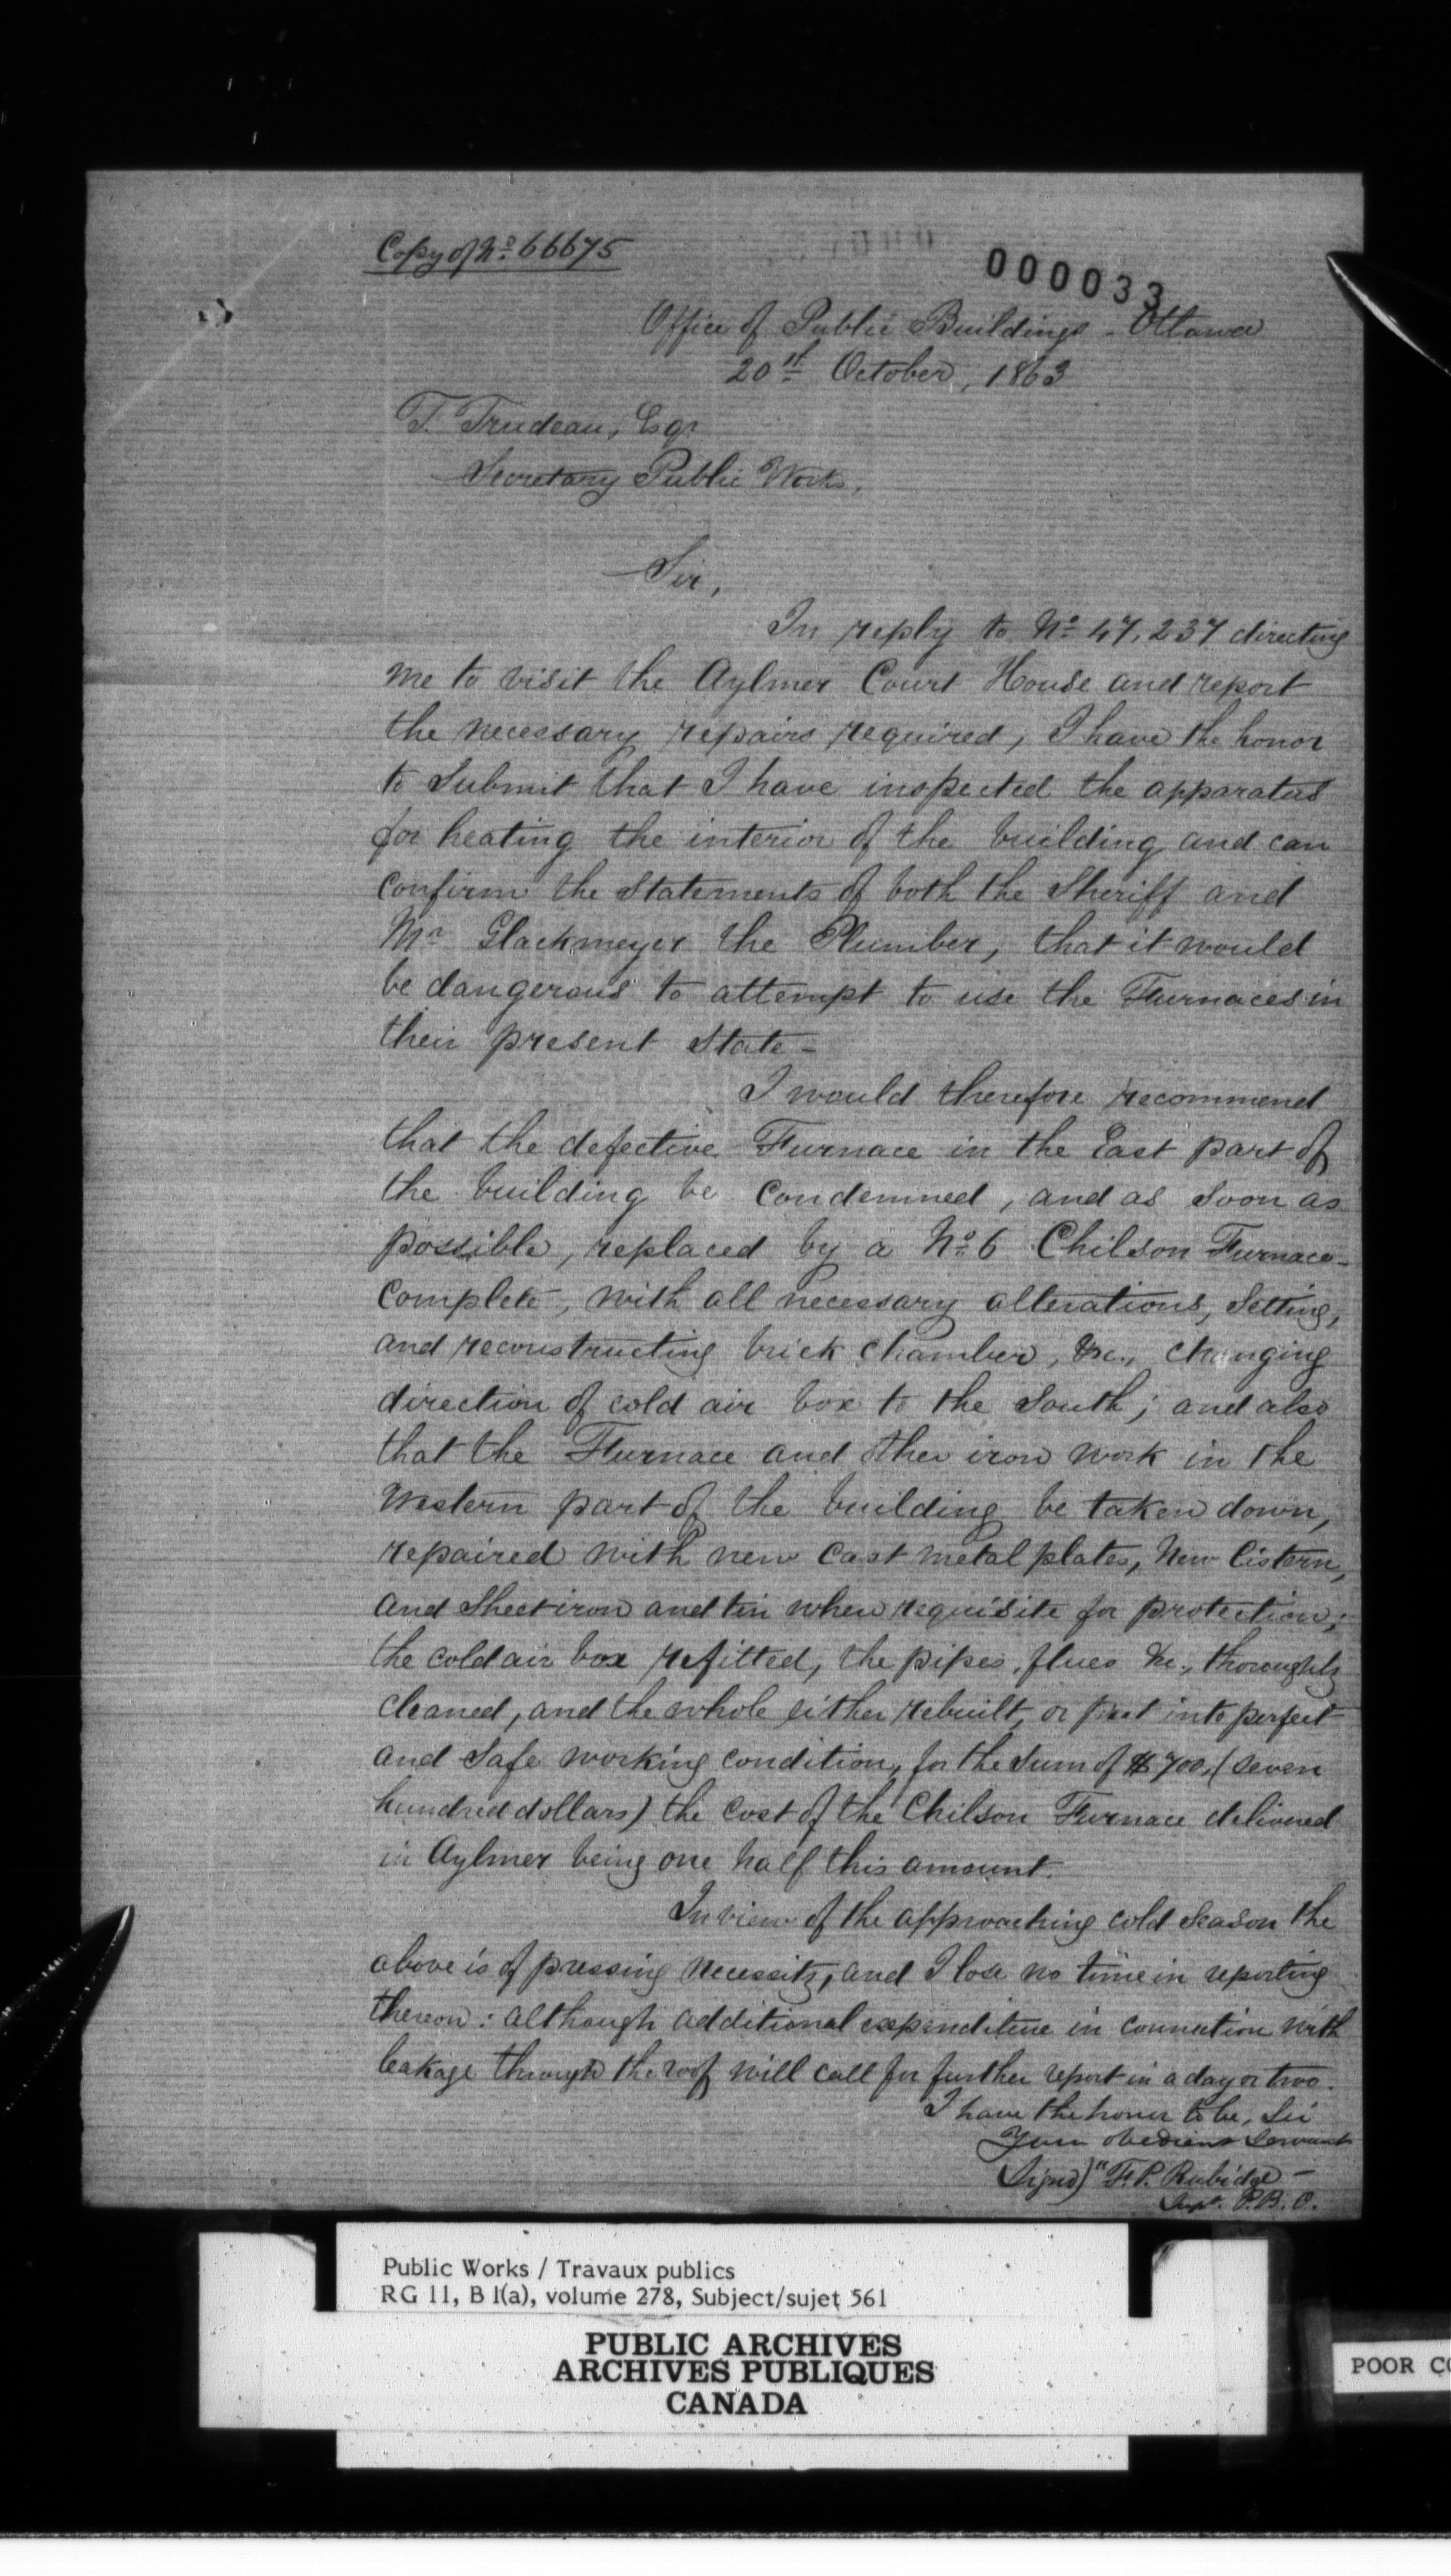 Copy of No. 66675
000033
Office of Public Buildings - Ottawa
20th October, 1863
T. Trudeau, Esqr
Secretary Public Works,
Sir,
In reply to No. 47,237 directing
me to visit the Aylmer Court House and report
the necessary repairs required, I have the honor
to submit that I have inspected the apparatus
for heating the interior of the building and can
confirm the statements of both the Sheriff and
Mr Glackmeyer the Plumber, that it would
be dangerous to attempt to use the Furnaces in
their present state -
I would therefore recommend
that the defective Furnace in the East part of
the building be condemned, and as soon as
possible, replaced by a No. 6 Chilson Furnace -
complete, with all necessary alterations, setting,
and reconstructing brick chamber, &c., changing
direction of cold air box to the South; and also
that the Furnace and other iron work in the
Western part of the building be taken down,
repaired with new cast metal plates, New Cistern,
and sheet iron and tin when requisite for protection;
the cold air box refitted, the pipes, flues &c., thoroughly
cleaned, and the whole either rebuilt, or put into perfect
and safe working condition, for the sum of $700, (seven
hundred dollars) the cost of the Chilson Furnace delivered
in Aylmer being one half this amount.
In view of the approaching cold season the
above is of pressing necessity, and I lose no time in reporting
thereon: although additional expenditure in connection with
leakage through the roof will call for further report in a day or two.
I have the honor to be, Sir
Your obedient Servant
Signed) "F. P. Rubidge -
Supt. P. B. O.
Public Works / Travaux publics
RG 11, B 1(a), volume 278, Subject/sujet 561
PUBLIC ARCHIVES
ARCHIVES PUBLIQUES
CANADA
POOR CO